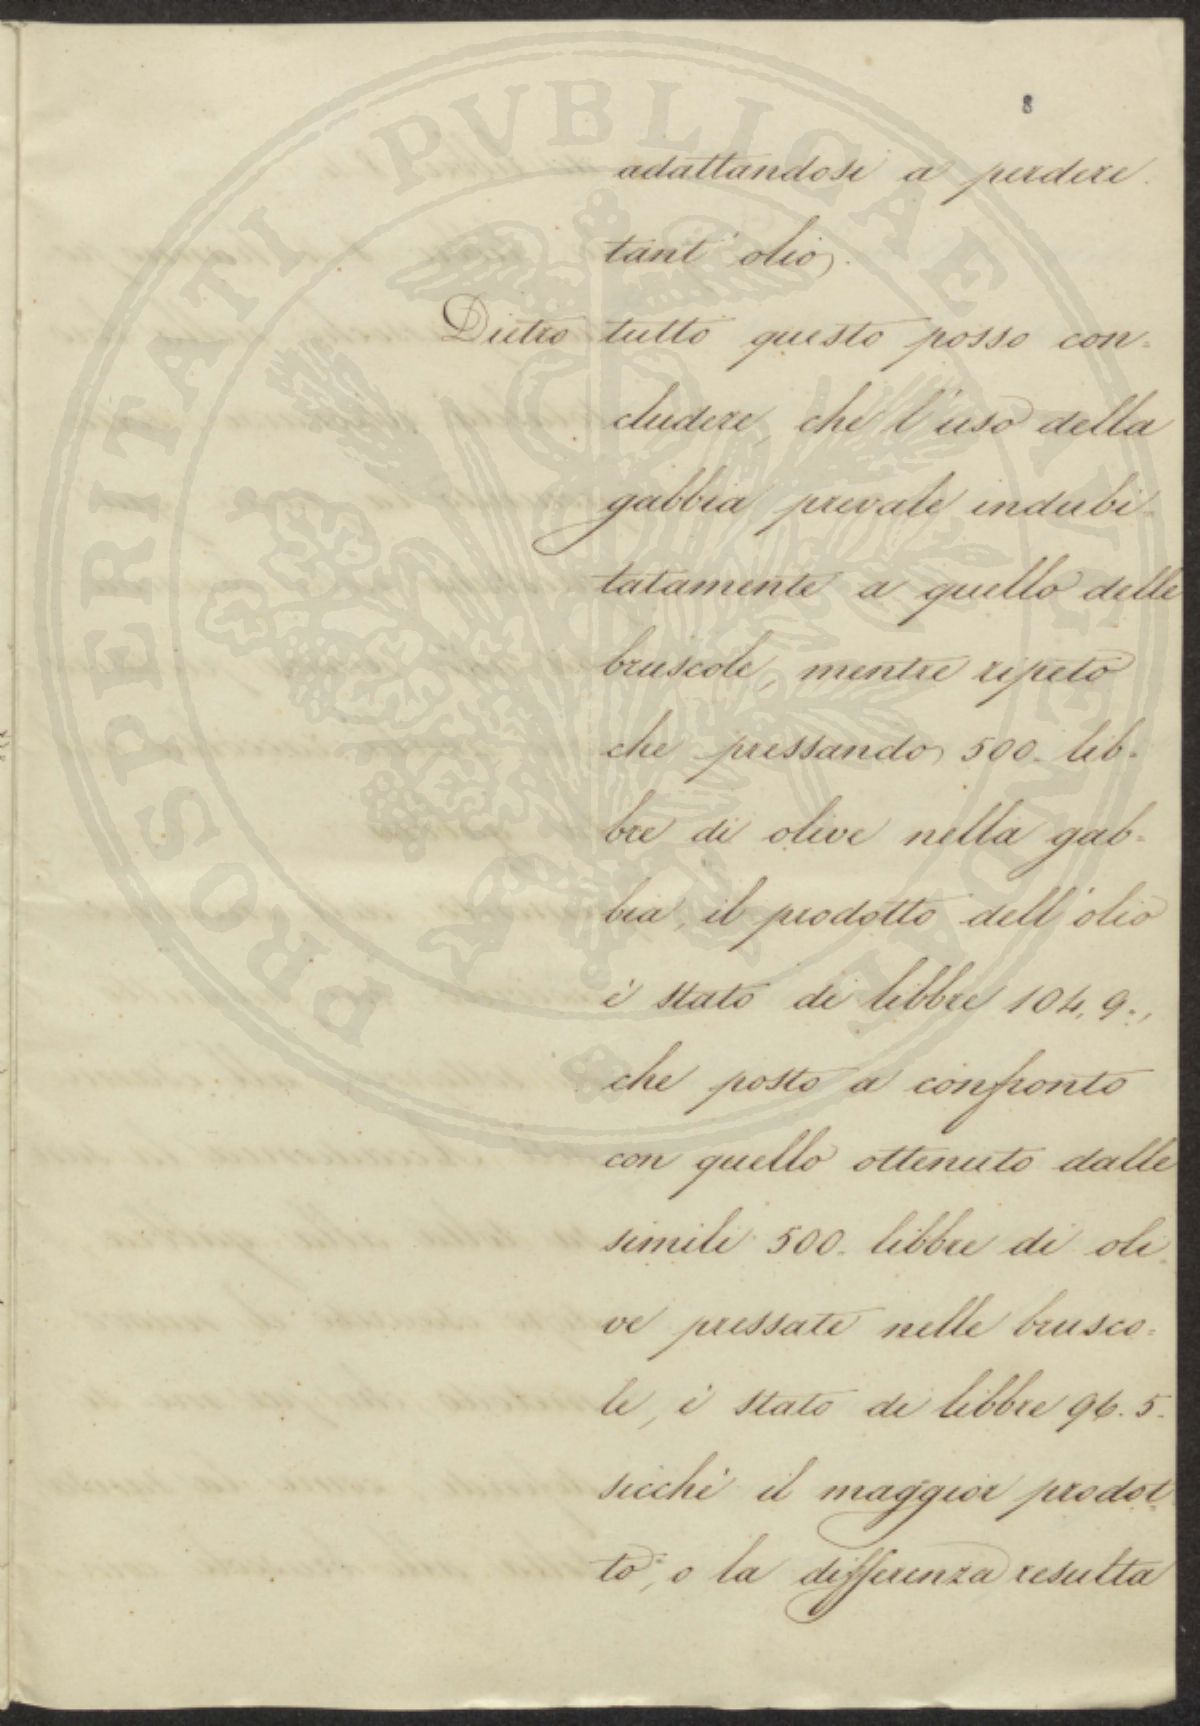 8
adattandosi a perdere
tant' olio.
Dietro tutto questo posso con=
cludere, che l'uso della
gabbia prevale indubi=
tatamente a quello delle
bruscole, mentre ripeto
che pressando 500. lib=
bre di olive nella gab=
bia, il prodotto dell'olio
è stato di libbre 104, 9.,
che posto a confronto
con quello ottenuto dalle
simili 500. libbre di oli=
ve pressate nelle brusco=
le, è stato di libbre 96. 5.
sicchè il maggior prodot=
to, o la differenza resulta
PROSPERITATI PVBLICAE AVGENDAE